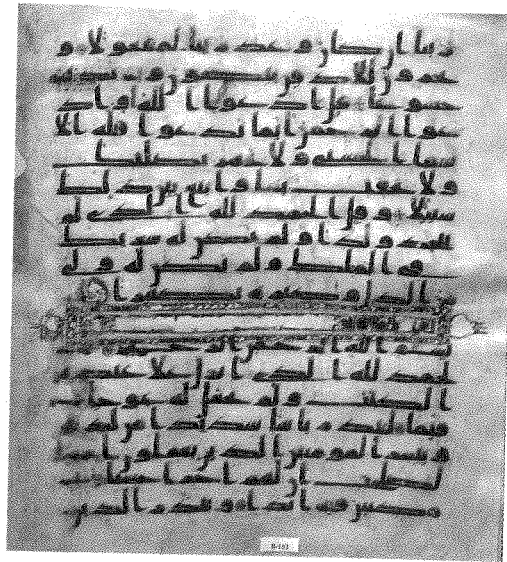 ربنا ان كان وعد ربنا لمفعولا و
يخرون للاذقان يبكون ويزيدهم
خشوعا قل ادعوا الله او اد
عوا الرحمن ايا ما تدعوا فله الا
سما الحسنى ولا تجهر بصلتك
ولا تخافت بها وابتغ بين ذلك
سبيلا وقل الحمد لله الذي لم
يتخذ ولدا ولم يكن له شريك
في الملك ولم يكن له ولي
من الذل وكبره تكبيرا
بسم الله الرحمن الرحيم
الحمد لله الذي انزل على عبده
الكتب ولم يجعل له عوجا
قيما لينذر باسا شديدا من لدنه
ويبشر المومنين الذين يعملون
الصلحت ان لهم اجرا حسنا
مكثين فيه ابدا وينذر الذين